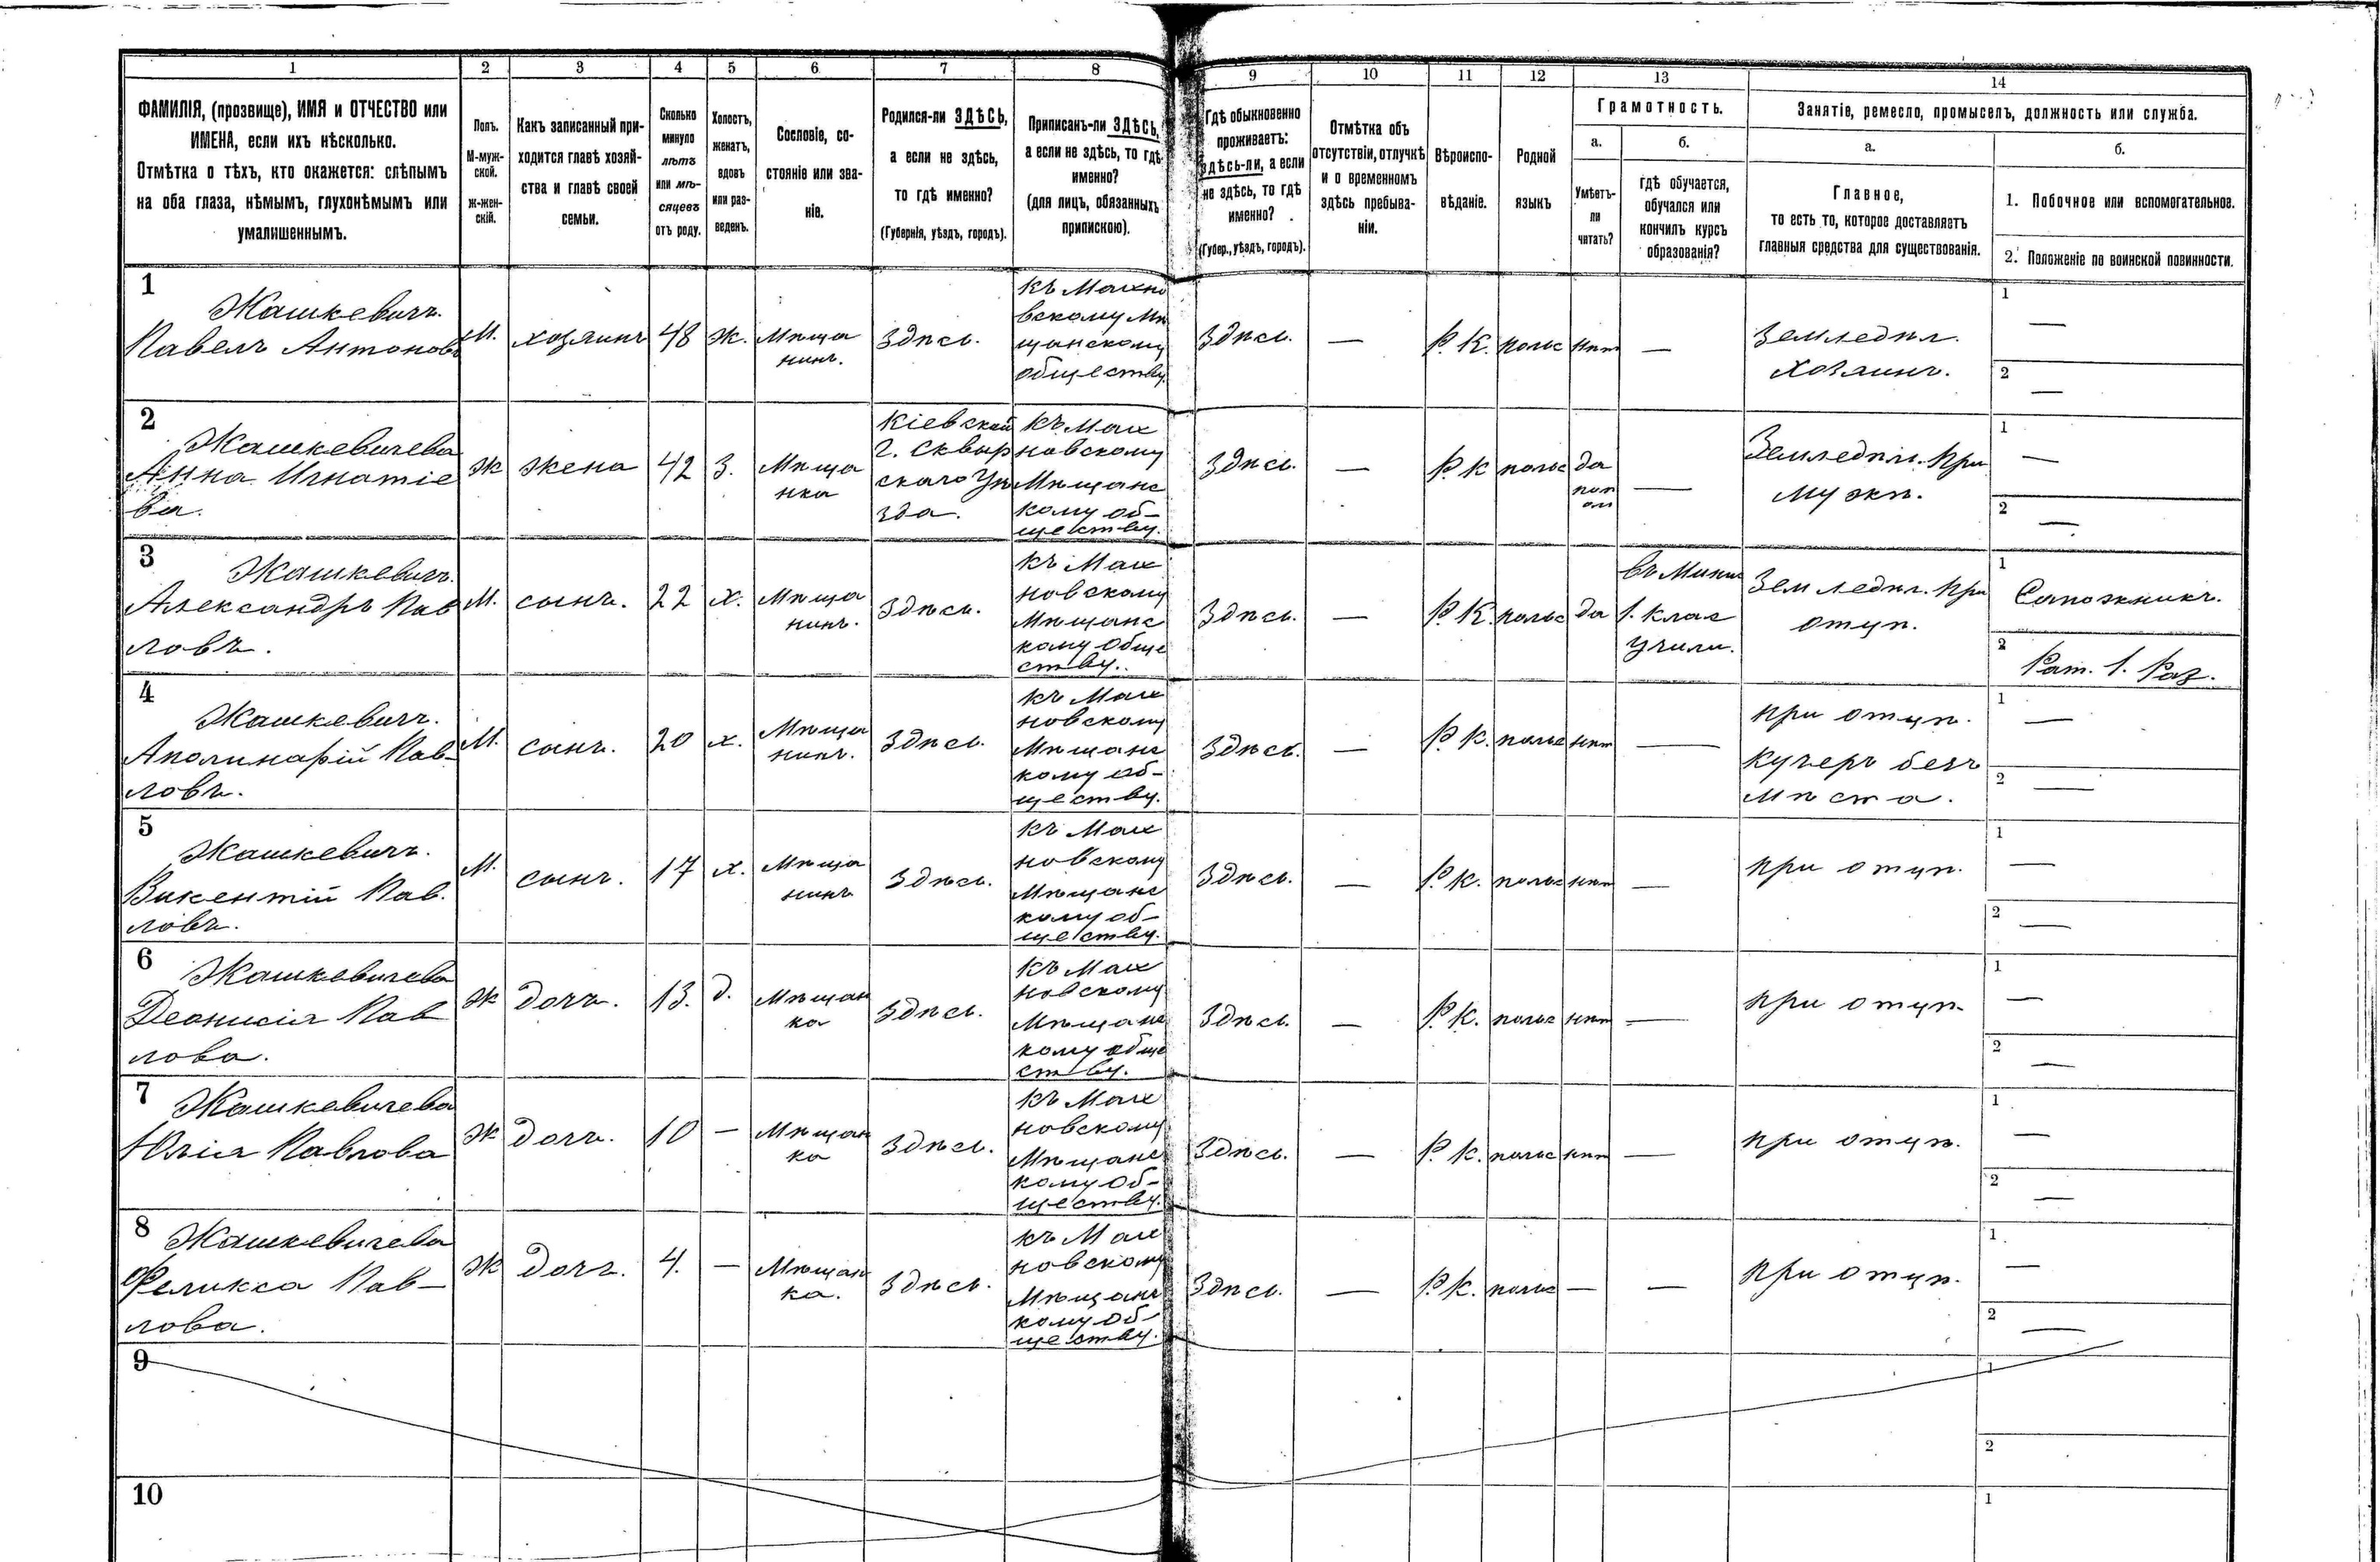 1 2 3 4 5 6 7 8 9 10 11 12 13 14
ФАМИЛІЯ, (прозвище), ИМЯ и ОТЧЕСТВО или
ИМЕНА, если ихъ нѣсколько.
Отмѣтка о тѣхъ, кто окажется: слѣпымъ
на оба глаза, нѣмымъ, глухонѣмымъ или
умалишеннымъ.
Полъ.
М-муж-
ской.
Ж-жен-
скій.
Какъ записанный при-
ходится главѣ хозяй-
ства и главѣ своей
семьи.
Сколько
минуло
лѣтъ
или мѣ-
сяцевъ
отъ роду.
Холостъ,
женатъ,
вдовъ
или раз-
веденъ.
Сословіе, со-
стояніе или зва-
ніе.
Родился-ли ЗДѢСЬ,
а если не здѣсь,
то гдѣ именно?
(Губернія, уѣздъ, городъ).
Приписанъ-ли ЗДѢСЬ,
а если не здѣсь, то гдѣ
именно?
(для лицъ, обязанныхъ
припискою).
Гдѣ обыкновенно
проживаетъ:
ЗДѢСЬ-ли, а если
не здѣсь, то гдѣ
именно?
(Губер., уѣздъ, городъ).
Отмѣтка объ
отсутствіи, отлучкѣ
и о временномъ
здѣсь пребыва-
ніи.
Вѣроиспо-
вѣданіе.
Родной
языкъ
Грамотность.
а.
Умѣетъ-
ли
читать?
б.
гдѣ обучается,
обучался или
кончилъ курсъ
образованія?
Занятіе, ремесло, промыселъ, должность или служба.
а.
Главное,
то есть то, которое доставляетъ
главныя средства для существованія.
б.
1. Побочное или вспомогательное.
2. Положеніе по воинской повинности.
1
Жашкевичъ.
Павелъ Антоновъ
М.
хозяинъ
48
ж.
Мѣща
нинъ.
Здѣсь.
къ Махно
вскому Мѣ
щанскому
обществу.
Здѣсь.
—
Р. К.
польс
нѣт
—
Земледѣл.
хозяинъ.
1
—
2
—
2
Жашкевичева
Анна Игнатіе
ва.
Ж
жена
42
З.
Мѣща
нка
Кіевской
г. Сквир
скаго Уѣ
зда.
къ Мах
новскому
Мѣщанс
кому об-
ществу.
Здѣсь.
—
Р. К
польс
да
поп
ол
—
Земледѣл. при
мужѣ.
1
—
2
—
3
Жашкевичъ.
Александръ Пав
ловъ.
М.
сынъ.
22
х.
Мѣща
нинъ.
Здѣсь.
къ Мах
новскому
Мѣщанс
кому обще
ству.
Здѣсь.
—
Р. К.
польс
да
въ Мини
1. клас
учили.
Земледѣл. при
отцѣ.
1
Сапожникъ.
2
Рат. 1. Раз.
4
Жашкевичъ.
Аполинарій Пав-
ловъ.
М.
сынъ.
20
х.
Мѣща
нинъ.
Здѣсь.
къ Мах
новскому
Мѣщанс
кому об-
ществу.
Здѣсь.
—
Р. К.
польс
нѣт
—
при отцѣ.
кучеръ безъ
мѣста.
1
—
2
—
5
Жашкевичъ.
Викентій Пав.
ловъ.
М.
сынъ.
17
х.
Мѣща
нинъ
Здѣсь.
къ Мах
новскому
Мѣщанс
кому об-
ществу.
Здѣсь.
—
Р. К.
польс
нѣт
—
при отцѣ.
1
—
2
—
6
Жашкевичева
Деонисія Пав
лова.
Ж
дочь.
13.
д.
Мѣщан
ка
Здѣсь.
къ Мах
новскому
Мѣщанс
кому обще
ству.
Здѣсь.
—
Р. К.
польс
нѣт
—
при отцѣ.
1
—
2
—
7
Жашкевичева
Юлія Павлова
Ж
дочь.
10
—
Мѣщан
ка
Здѣсь.
къ Мах
новскому
Мѣщанс
кому об-
ществу.
Здѣсь.
—
Р. К.
польс
нѣт
—
при отцѣ.
1
—
2
—
8
Жашкевичева
Феликса Пав-
лова.
Ж
дочь.
4.
—
Мѣщан
ка.
Здѣсь.
къ Мах
новскому
Мѣщанс
кому об-
ществу.
Здѣсь.
—
Р. К.
польс
—
—
при отцѣ.
1
—
2
—
9
1
2
10
1